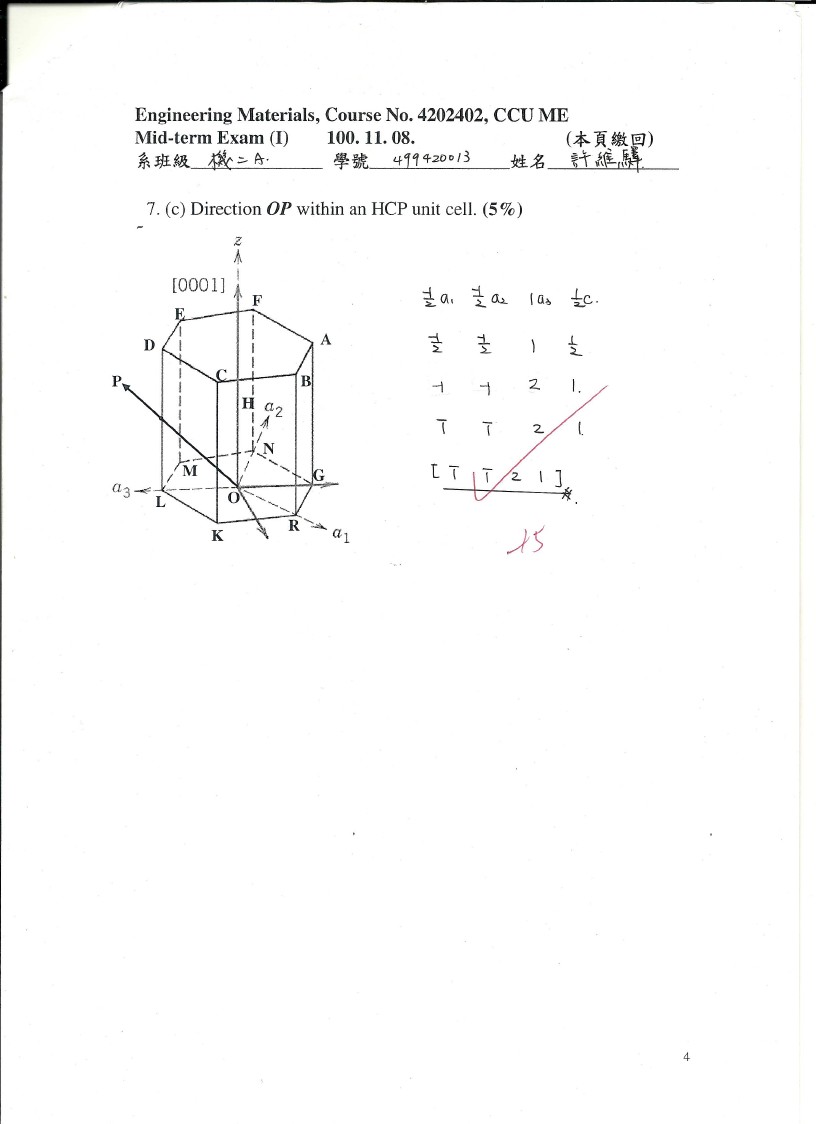 Engineering Materials, Course No. 4202402, CCU ME
Mid-term Exam (I) 100. 11. 08. (本頁繳回)
系班級 機二A. 學號 499420013 姓名 許維驛
7. (c) Direction OP within an HCP unit cell. (5%)
z
[0001]
F
E
D
A
C
B
P
H
a2
N
M
G
a3
L
O
K
R
a1
-1/2 a1 -1/2 a2 1a3 1/2 c.
-1/2 -1/2 1 1/2
-1 -1 2 1.
1̅ 1̅ 2 1.
[ 1̅ 1̅ 2 1 ]
+5
4